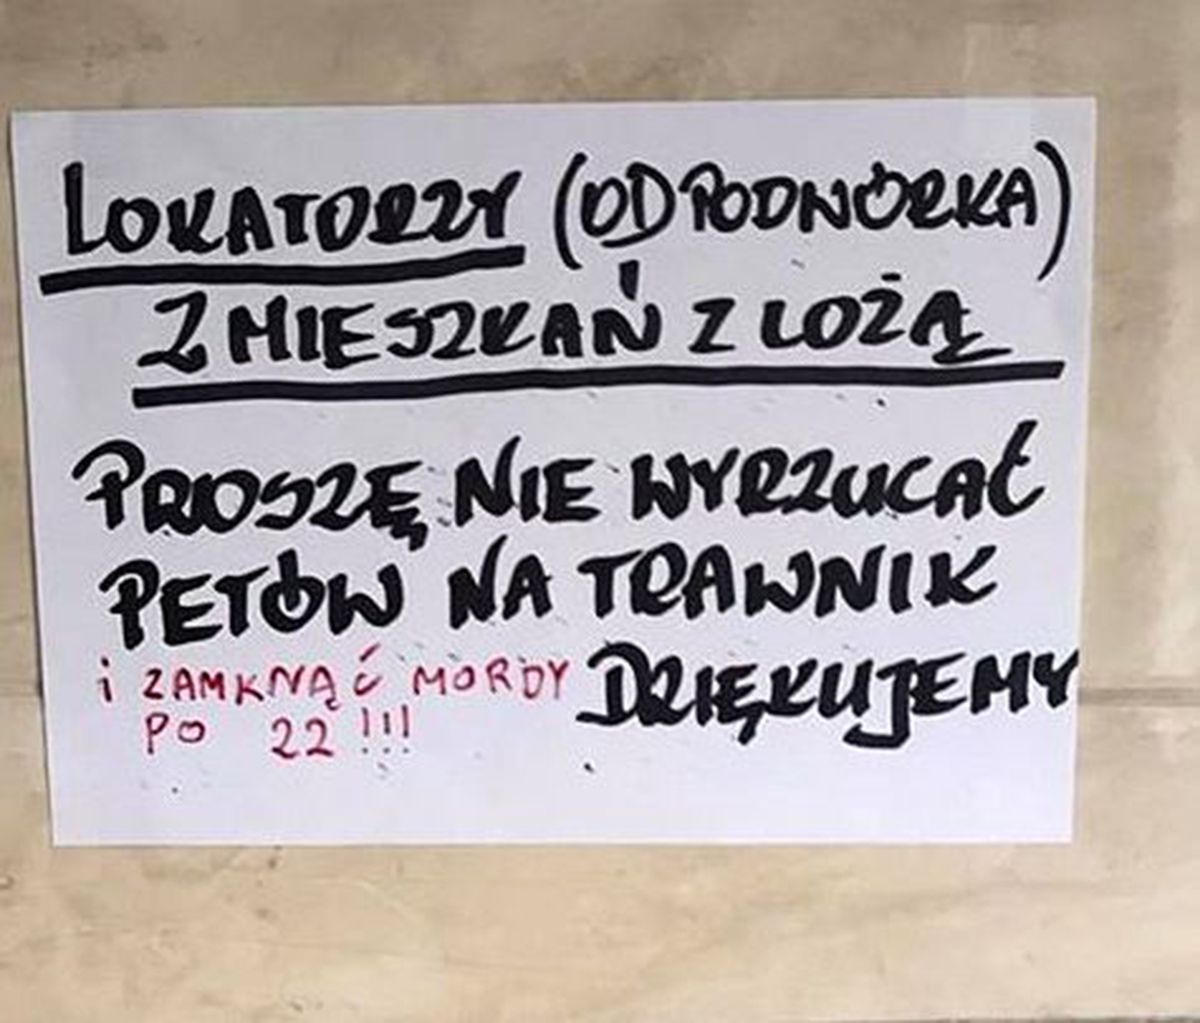 LOKATORZY (OD PODWÓRKA)
Z MIESZKAŃ Z LOŻĄ
PROSZĘ NIE WYRZUCAĆ
PETÓW NA TRAWNIK
i ZAMKNĄĆ MORDY DZIĘKUJEMY
PO 22 !!!